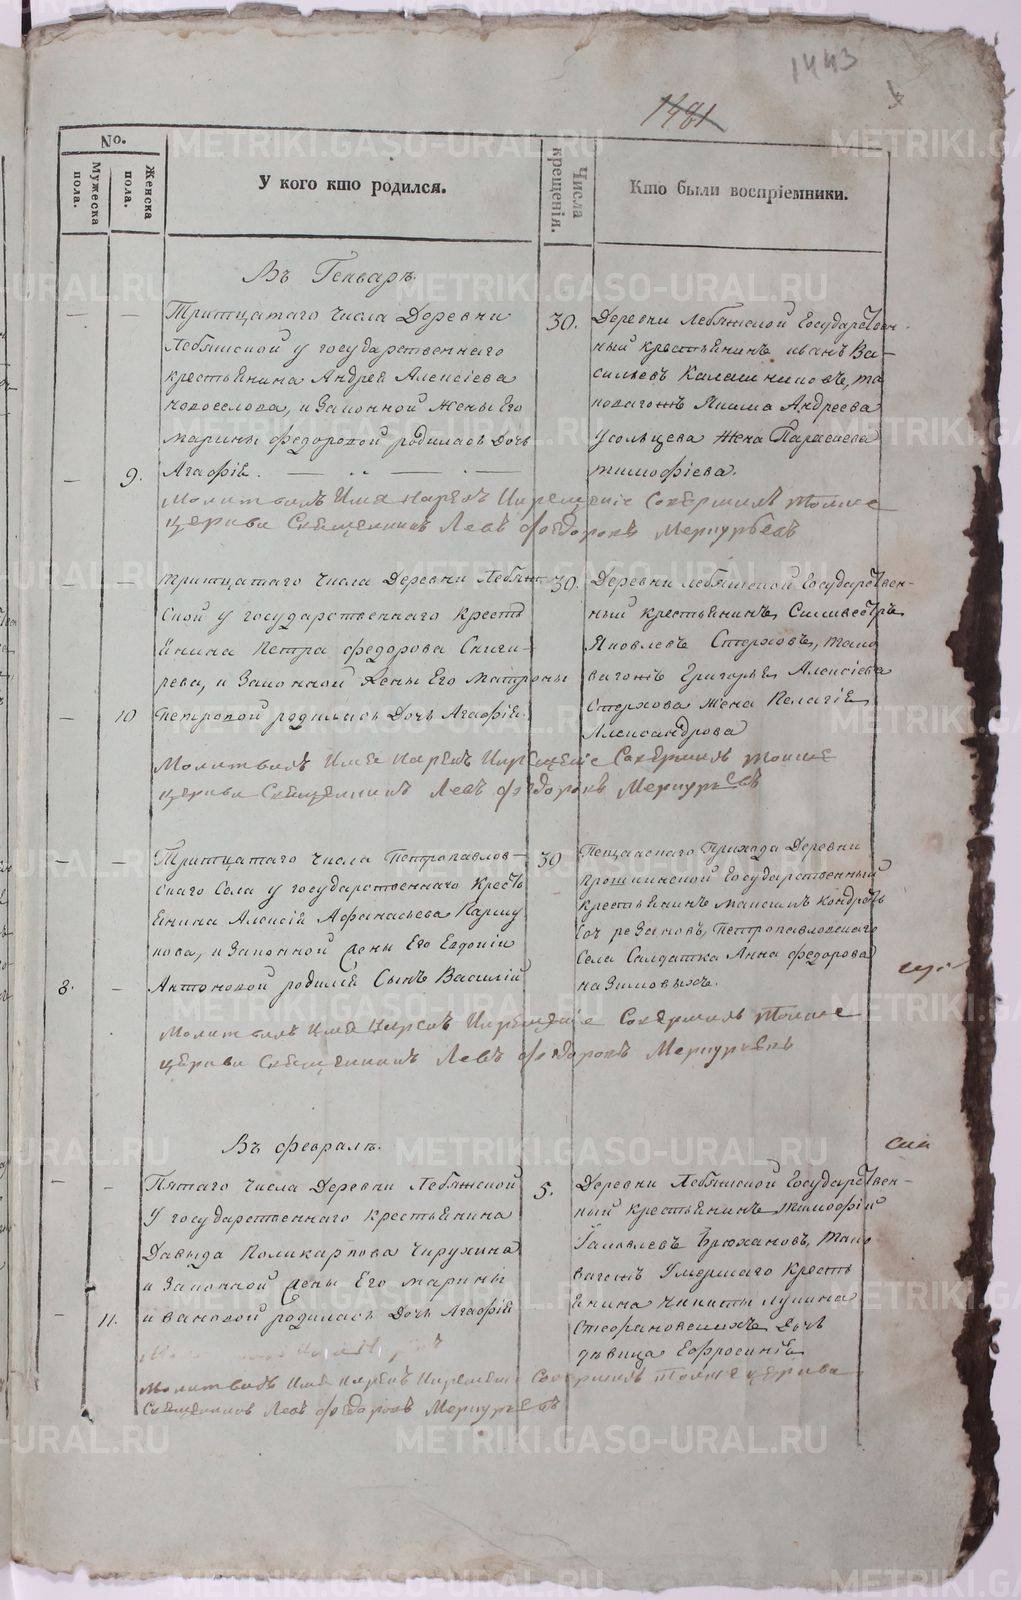 1443
1481
No.
Мужеска пола.
Женска пола.
У кого кто родился.
Числа крещенія.
Кто были воспріемники.
Въ Генварѣ.
Тритцатаго Числа Деревни
Лебяжской у государственнаго
крестьянина Андрея Алексіева
новоселова, и Законной Жены Его
Марины федоровой родилась Дочь
9. Агафія.
30. Деревни Лебяжской Государствен-
ный крестьянинъ иванъ Ва-
сильевъ Калашниковъ, та
коваго Якима Андреева
Усольцева Жена Параскева
тимофіева.
Молитвилъ Имя нарекъ Икрещеніе Совершилъ Тояже
церкви Священникъ Левъ федоровъ Меркурьевъ
тритцатаго Числа Деревни Лебяж
ской у государственнаго кресть
янина Петра федорова Сниги-
рева, и Законной Жены Его Матроны
10 Петровой родилась Дочь Агафія.
30. Деревни Лебяжской Государствен-
ный крестьянинъ Силивестръ
Яковлевъ Стерховъ, тако
ваго Григорья Алексіева
Стерхова Жена Пелагія
Александрова
Молитвилъ Имя нарекъ Икрещеніе Совершилъ тояже
церкви Священникъ Левъ федоровъ Меркурьевъ
Тритцатаго Числа Петропавлов-
скаго Села у государственнаго Кресть
янина Алексія Афанасьева Каршу
кова, и Законной жены Его Евдокіи
8. Антоновой родился Сынъ Василій
30 Пещанскаго Прихода Деревни
Прошкинской Государственный
крестьянинъ Максимъ Кондрать
евъ резановъ, Петропавловскаго
Села Салдатка Анна федорова
назимовыхъ.
Молитвилъ Имя нарекъ Икрещеніе Совершилъ Тояже
церкви Священникъ Левъ федоровъ Меркурьевъ
Въ февралѣ.
Пятаго Числа Деревни Лебяжской
У государственнаго крестьянина
Давыда Поликарпова Чирухина
и Законной жены Его марины
11. ивановой родилась Дочь Агафія
5. Деревни Лебяжской Государствен-
ный крестьянинъ тимофій
Яковлевъ Брюхановъ, тако
ваго Умершаго кресть
янина Никиты лукина
Стефановскихъ Дочь
дѣвица Ефросинія
Молитвилъ Имя нарекъ Икрещеніе Совершилъ тояже церкви
Священникъ Левъ федоровъ Меркурьевъ
METRIKI.GASO-URAL.RU